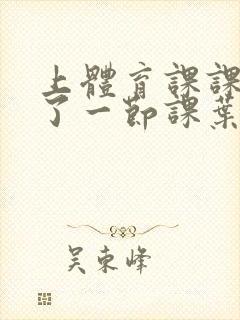 上體育課課
了一節課葉
吴東峰